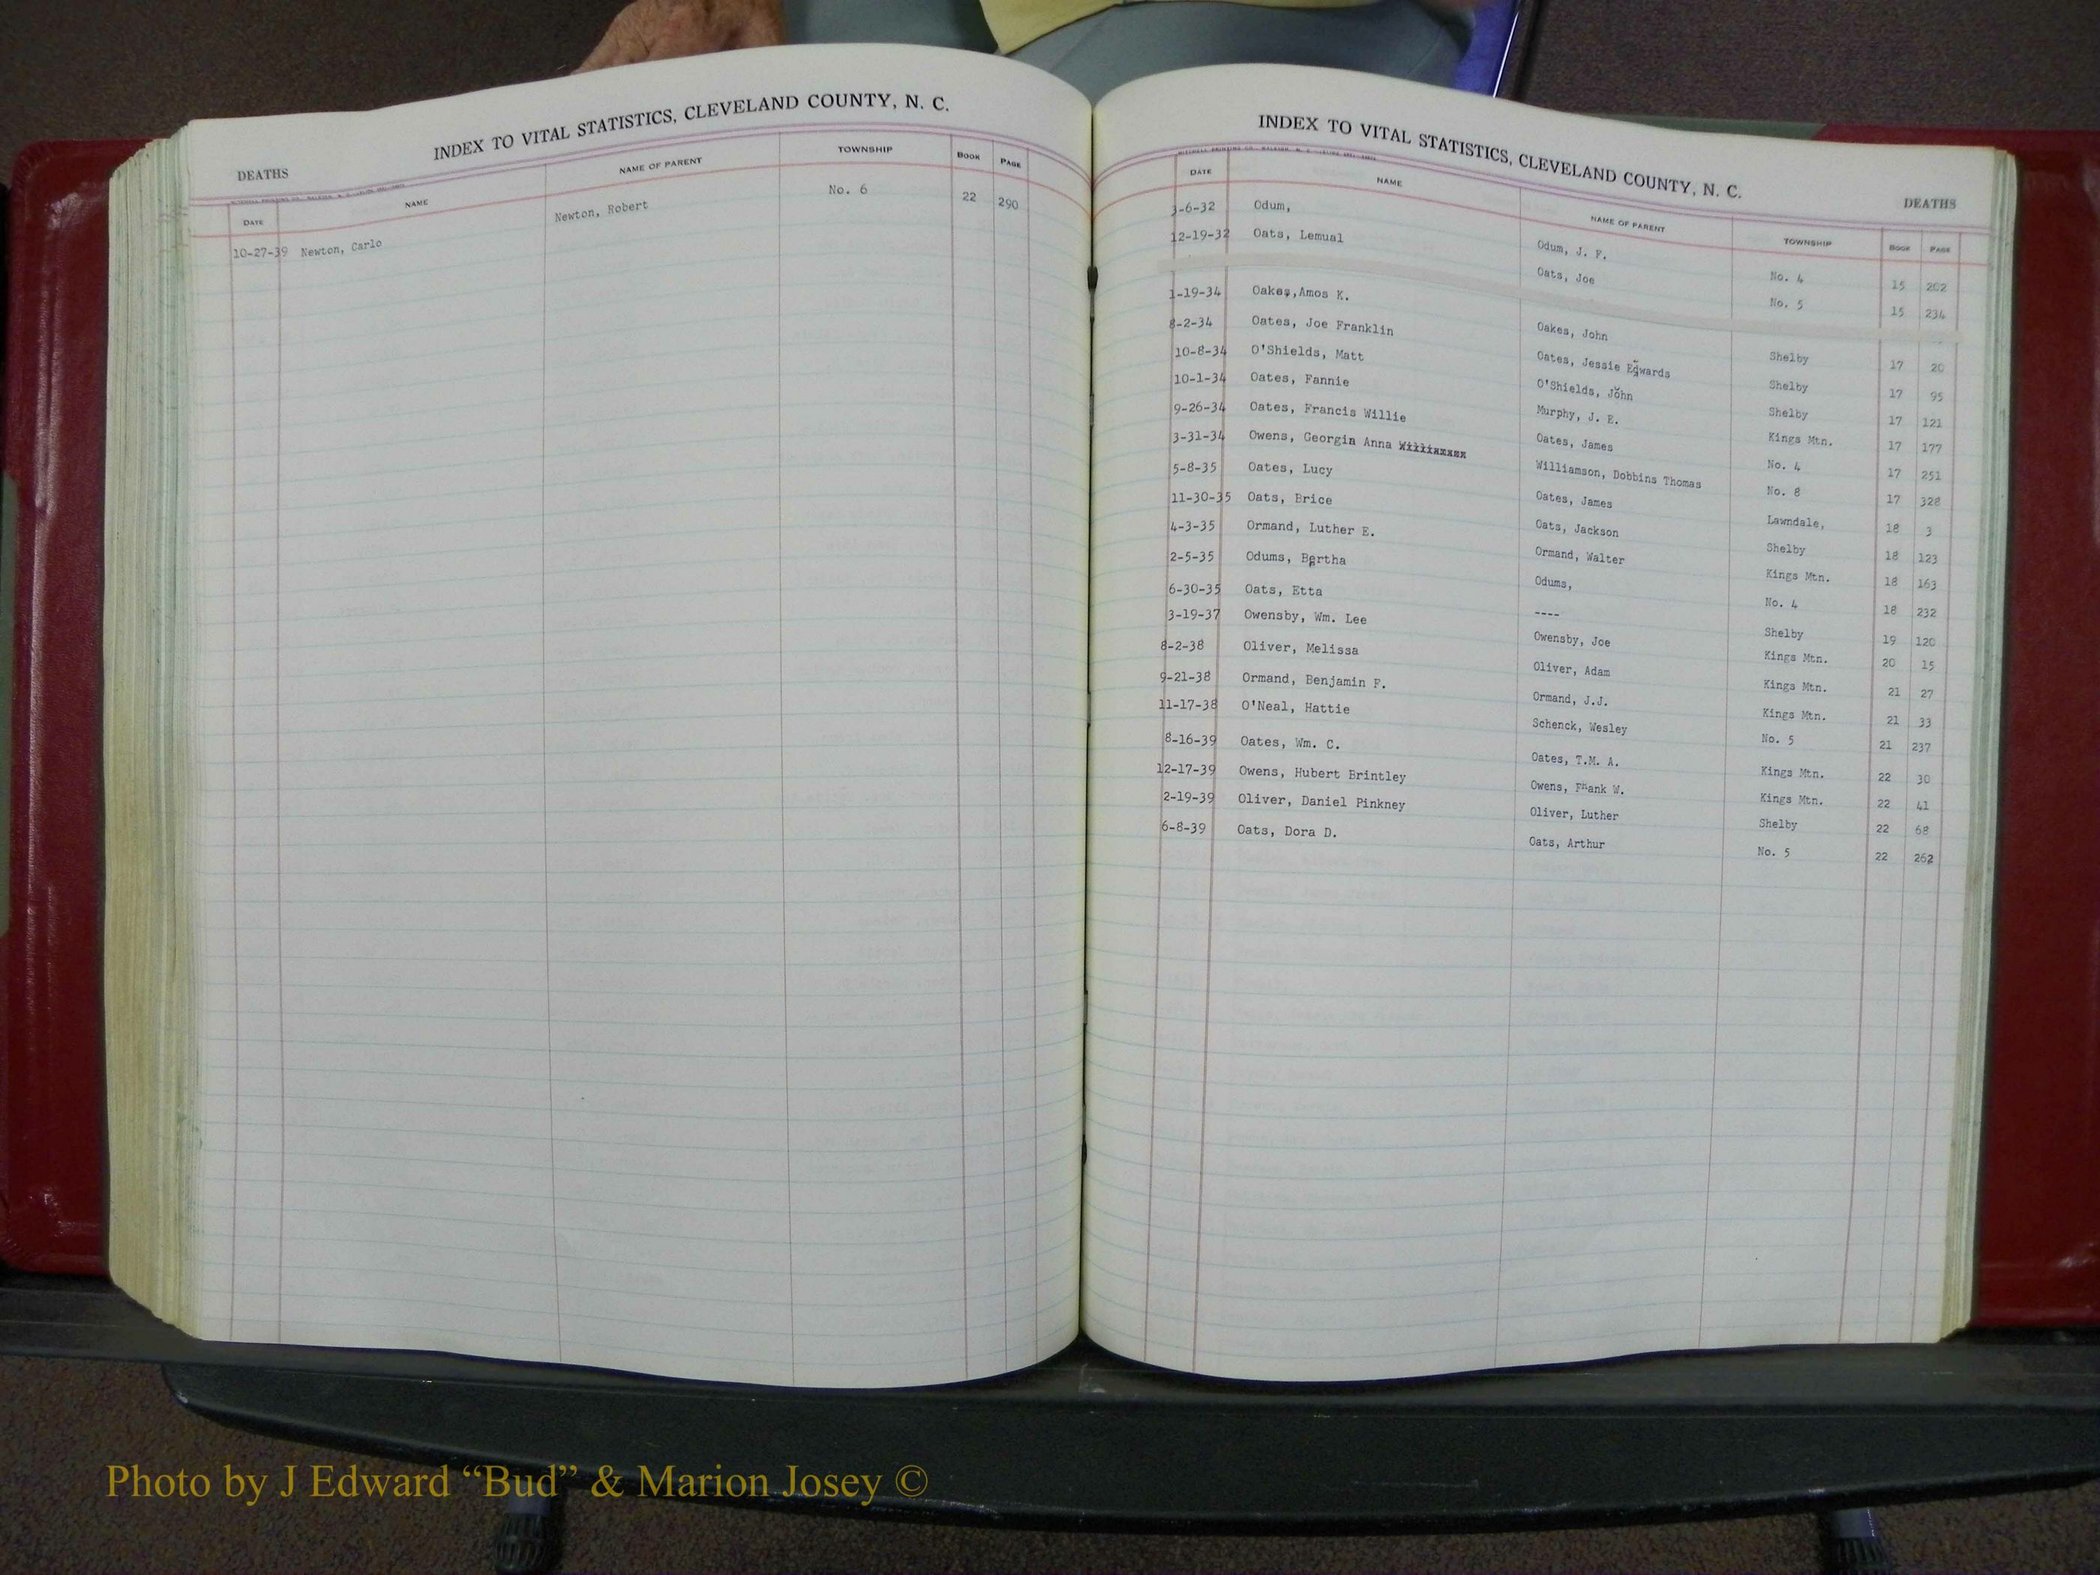 INDEX TO VITAL STATISTICS, CLEVELAND COUNTY, N. C.
DEATHS
DATE NAME NAME OF PARENT TOWNSHIP BOOK PAGE
10-27-39 Newton, Carlo Newton, Robert No. 6 22 290
INDEX TO VITAL STATISTICS, CLEVELAND COUNTY, N. C.
DEATHS
DATE NAME NAME OF PARENT TOWNSHIP BOOK PAGE
3-6-32 Odum, Odum, J. F. No. 4 15 202
12-19-32 Oats, Lemual Oats, Joe No. 5 15 234
1-19-34 Oakes, Amos K. Oakes, John Shelby 17 20
8-2-34 Oates, Joe Franklin Oates, Jessie Edwards Shelby 17 95
10-8-34 O'Shields, Matt O'Shields, John Shelby 17 121
10-1-34 Oates, Fannie Murphy, J. E. Kings Mtn. 17 177
9-26-34 Oates, Francis Willie Oates, James No. 4 17 251
3-31-34 Owens, Georgia Anna Williamson, Dobbins Thomas No. 8 17 328
5-8-35 Oates, Lucy Oates, James Lawndale, 18 3
11-30-35 Oats, Brice Oats, Jackson Shelby 18 123
4-3-35 Ormand, Luther E. Ormand, Walter Kings Mtn. 18 163
2-5-35 Odums, Bertha Odums, No. 4 18 232
6-30-35 Oats, Etta ---- Shelby 19 120
3-19-37 Owensby, Wm. Lee Owensby, Joe Kings Mtn. 20 15
8-2-38 Oliver, Melissa Oliver, Adam Kings Mtn. 21 27
9-21-38 Ormand, Benjamin F. Ormand, J.J. Kings Mtn. 21 33
11-17-38 O'Neal, Hattie Schenck, Wesley No. 5 21 237
8-16-39 Oates, Wm. C. Oates, T.M. A. Kings Mtn. 22 30
12-17-39 Owens, Hubert Brintley Owens, Frank W. Kings Mtn. 22 41
2-19-39 Oliver, Daniel Pinkney Oliver, Luther Shelby 22 68
6-8-39 Oats, Dora D. Oats, Arthur No. 5 22 262
Photo by J Edward “Bud” & Marion Josey ©